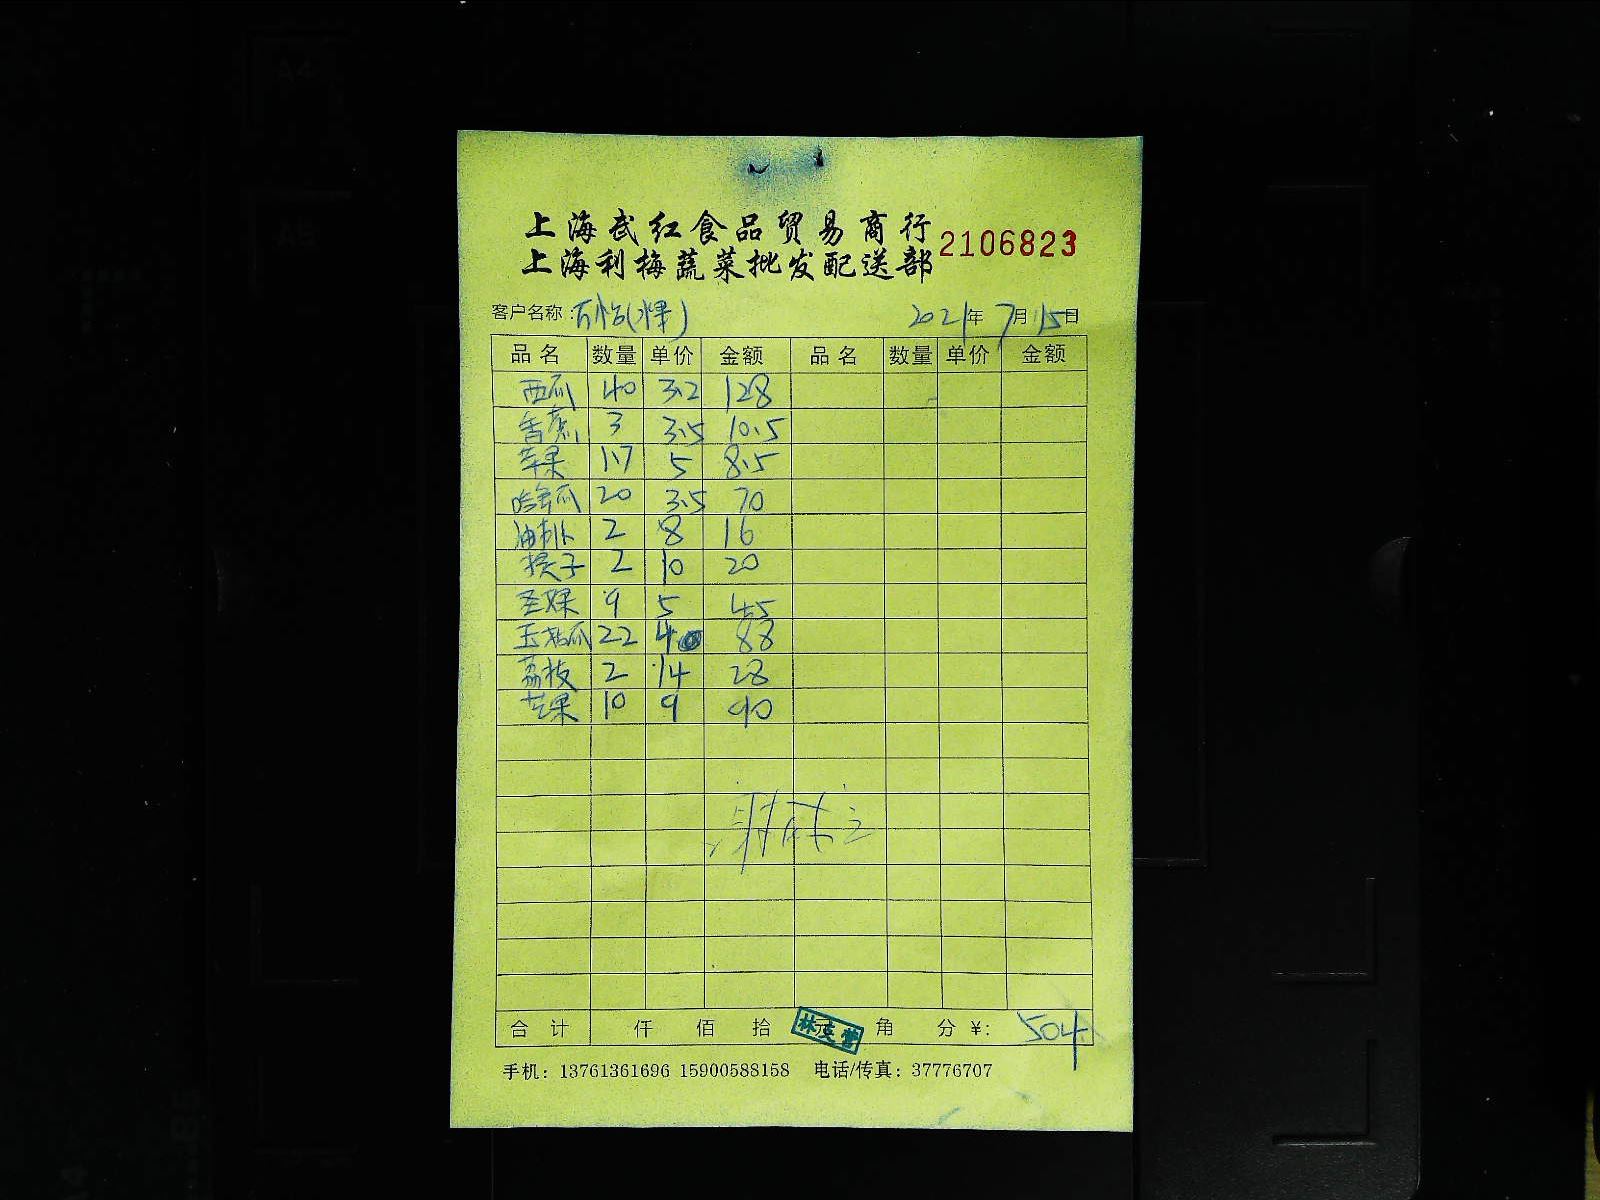 上海武红食品贸易商行
上海利梅蔬菜批发配送部
2106823
客户名称: 2021年7月15日
品名 数量 单价 金额 品名 数量 单价 金额
西瓜 40 3.2 128
香蕉 3 3.5 10.5
苹果 1.7 5 8.5
哈密瓜 20 3.5 70
油桃 2 8 16
提子 2 10 20
圣女果 9 5 45
玉菇瓜 22 4 88
荔枝 2 14 28
芒果 10 9 90
合计 仟 佰 拾 元 角 分 ¥: 504
手机: 13761361696 15900588158 电话/传真: 37776707